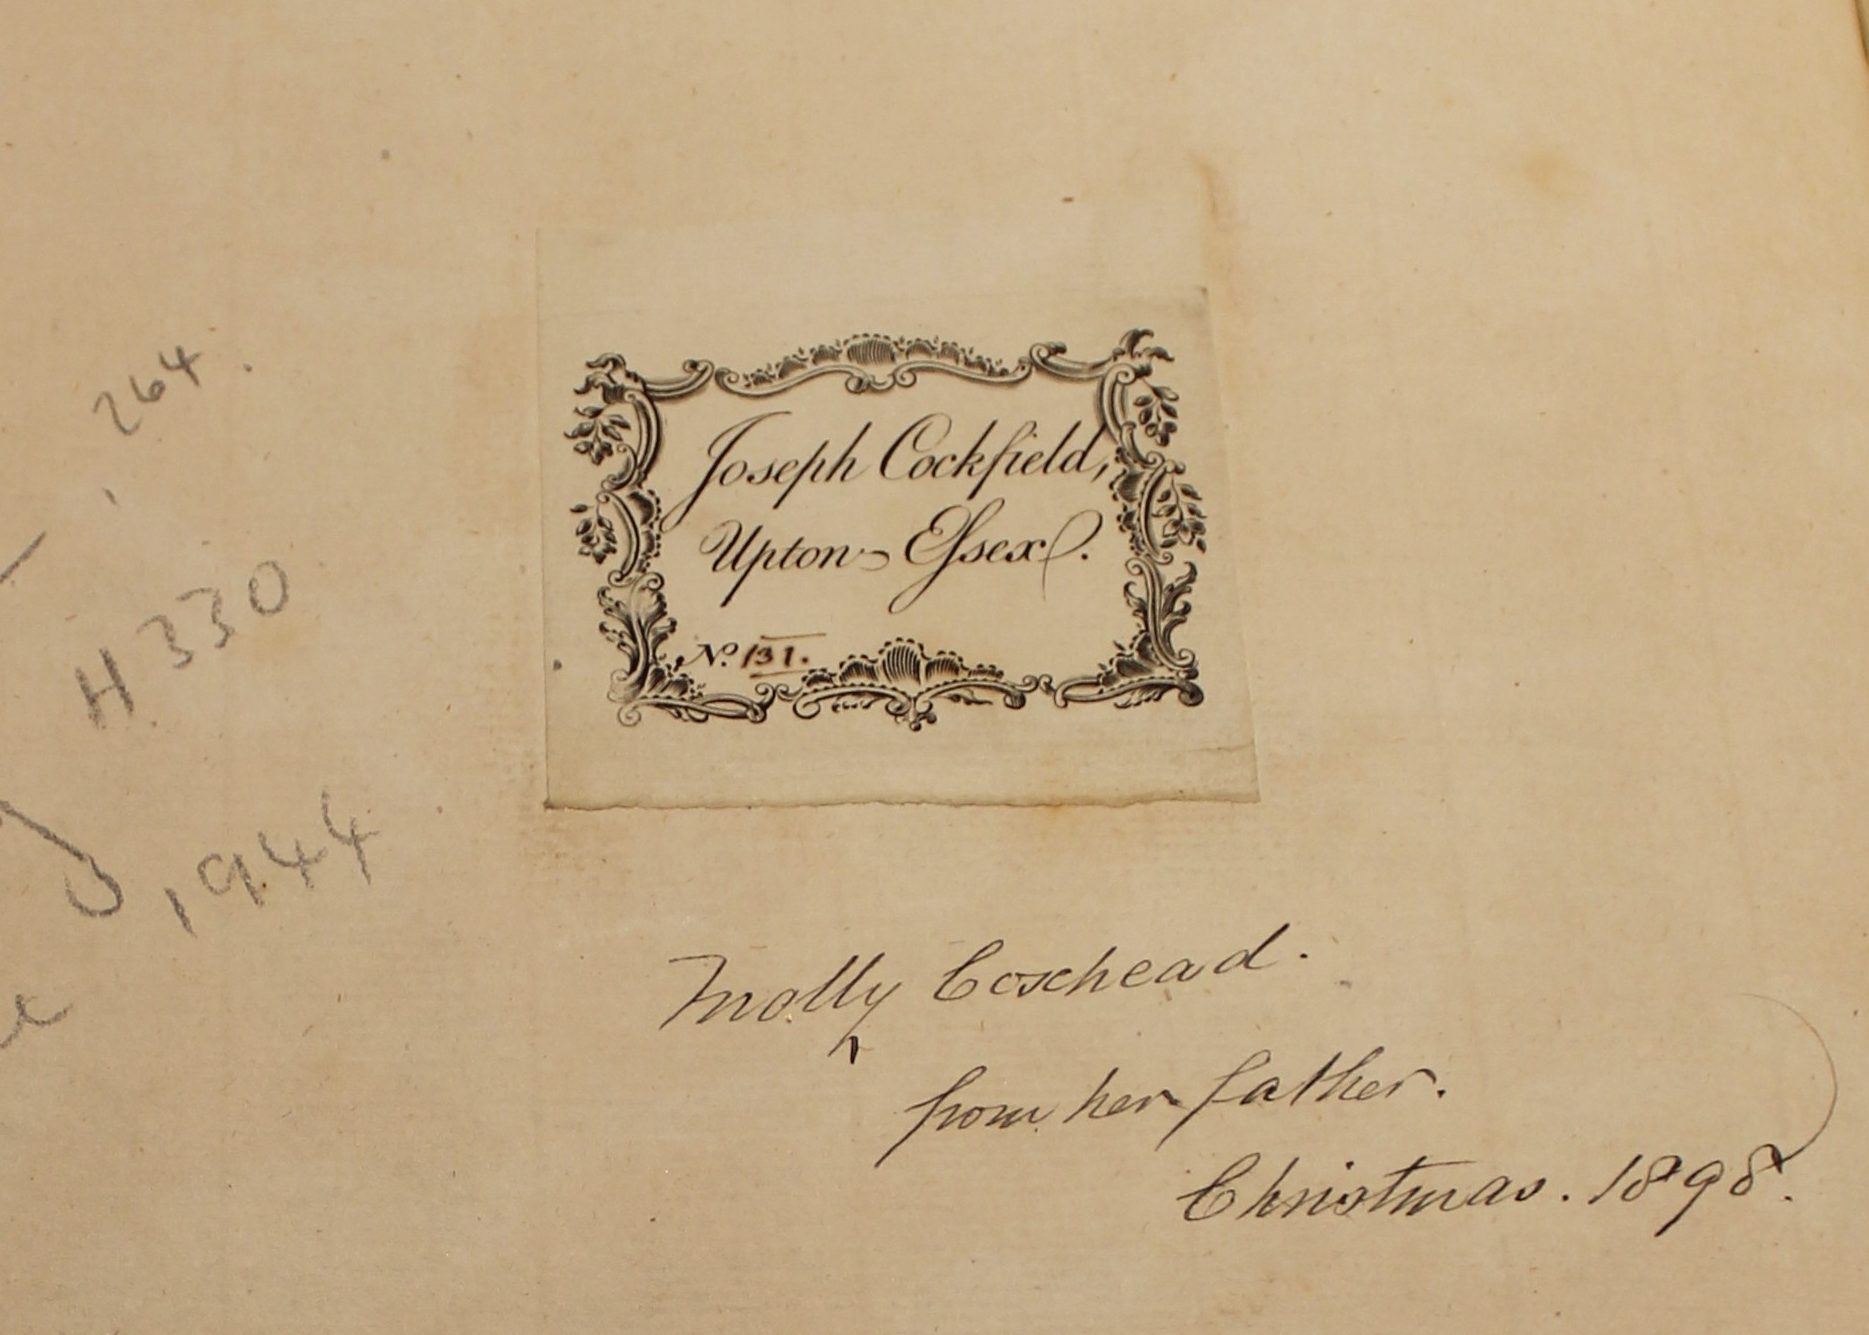 264.
H 330
1944
Joseph Cockfield,
Upton - Eſsex.
No. 131.
Molly Coxhead.
from her father.
Christmas. 1898.